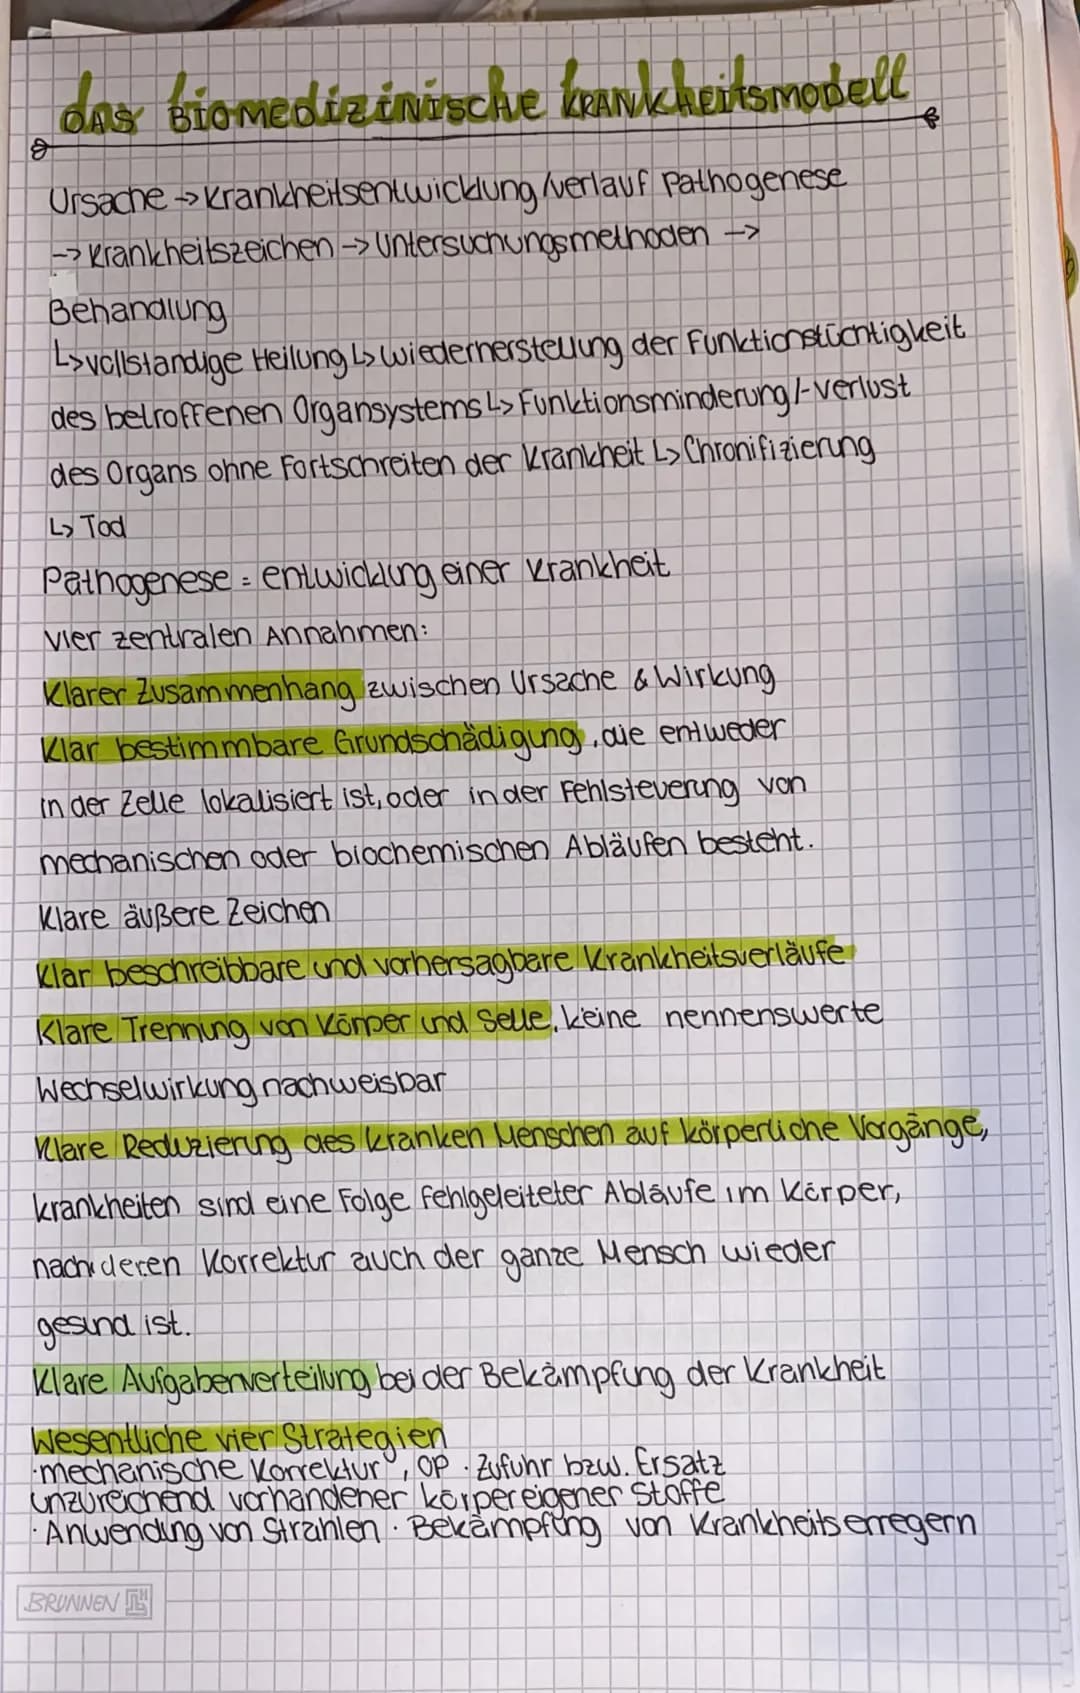 das Biomedizinische Krankheitsmodell
Ursache → Krankheitsentwicklung/verlauf Pathogenese
→ Krankheitszeichen → Untersuchungsmethoden →
Behandlung
↳ vollständige Heilung ↳ Wiederherstellung der Funktionstüchtigkeit
des betroffenen Organsystems ↳ Funktionsminderung/-verlust
des Organs ohne Fortschreiten der Krankheit ↳ Chronifizierung
↳ Tod
Pathogenese = entwicklung einer Krankheit
vier zentralen Annahmen:
Klarer Zusammenhang zwischen Ursache & Wirkung
Klar bestimmbare Grundschädigung, die entweder
in der Zelle lokalisiert ist, oder in der Fehlsteuerung von
mechanischen oder biochemischen Abläufen besteht.
Klare äußere Zeichen
Klar beschreibbare und vorhersagbare Krankheitsverläufe
Klare Trennung von Körper und Selle, keine nennenswerte
Wechselwirkung nachweisbar
Klare Reduzierung des kranken Menschen auf körperliche Vorgänge,
krankheiten sind eine Folge fehlgeleiteter Abläufe im Körper,
nach deren Korrektur auch der ganze Mensch wieder
gesund ist.
Klare Aufgabenverteilung bei der Bekämpfung der Krankheit
Wesentliche vier Strategien
·mechanische Korrektur, OP · Zufuhr bzw. Ersatz
unzureichend vorhandener körpereigener Stoffe
· Anwendung von Strahlen · Bekämpfung von Krankheitserregern
BRUNNEN